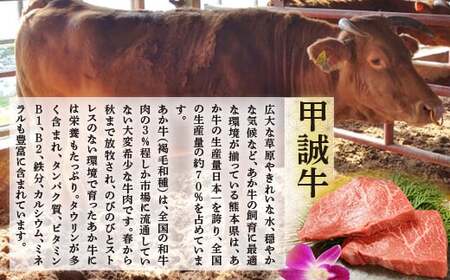 甲誠牛
広大な草原やきれいな水、穏やか
な気候など、あか牛の飼育に最適
な環境が揃っている熊本県は、あ
か牛の生産量日本一を誇り、全国
の生産量の約70%を占めていま
す。
あか牛(褐毛和種)は、全国の和牛
肉の3%程しか市場に流通してい
ない大変希少な牛肉です。春から
秋まで放牧され、のびのびとスト
レスのない環境で育ったあか牛に
は栄養もたっぷり。タウリンが多
く含まれ、タンパク質、ビタミン
B1、B2、鉄分、カルシウム、ミネ
ラルも豊富に含まれています。